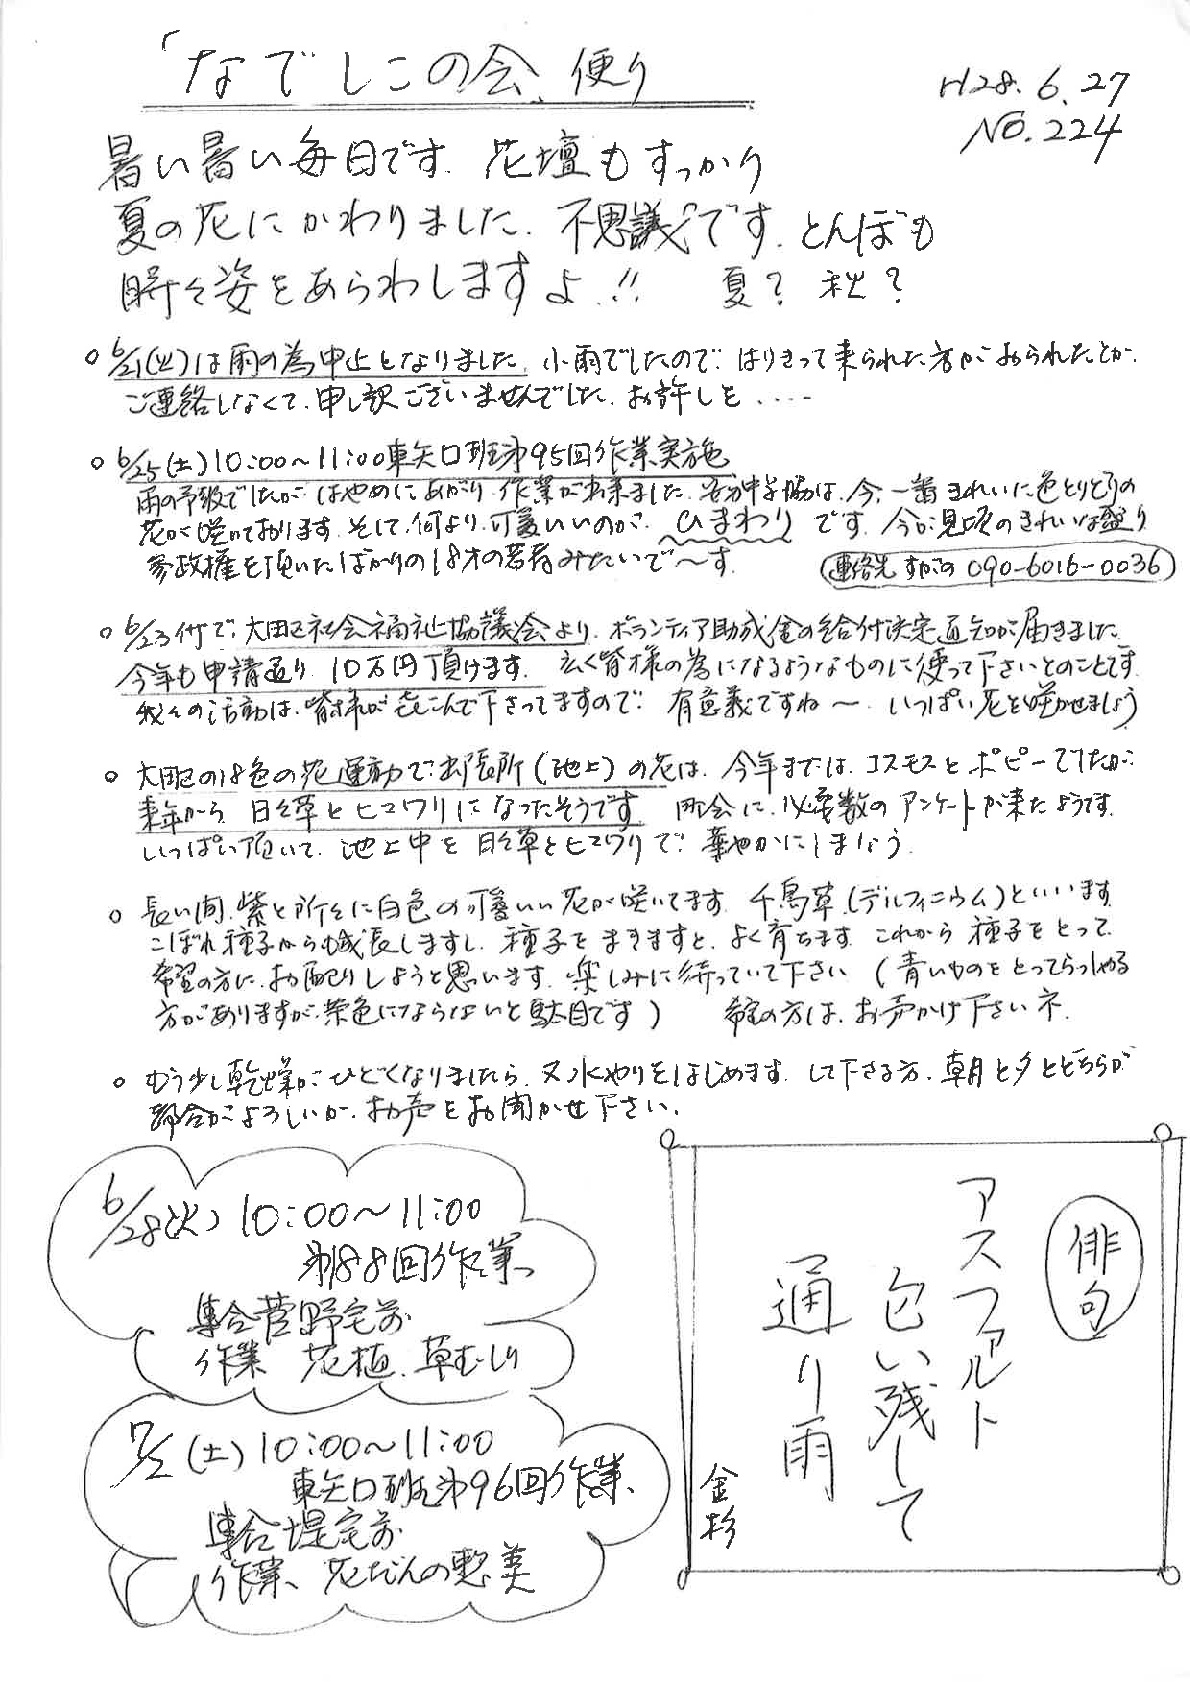 「なでしこの会」便り
H28.6.27
NO.224
暑い暑い毎日です. 花壇もすっかり
夏の花にかわりました. 不思議です. とんぼも
時々姿をあらわしますよ!! 夏? 秋?
○ 6/21(火)は雨の為中止となりました. 小雨でしたので はりきって来られた方がおられたとか.
ご連絡しなくて、申し訳ございませんでした. お許しを....
○ 6/25(土)10:00〜11:00東矢口班第95回作業実施
雨の予報でしたが はやめにあがり 作業が出来ました. 安方中学協は、今、一番きれいに色とりどりの
花が咲いております. そして、何より、可愛いいのが、ひまわりです. 今が見頃のきれいな盛り
参政権を頂いたばかりの18才の若者みたいで〜す.
連絡先 すがの 090-6016-0036
○ 6/23付で、大田区社会福祉協議会より、ボランティア助成金の給付決定通知が届きました
今年も申請通り 10万円頂けます. 広く皆様の為になるようなものに使って下さいとのことです.
我々の活動は、皆様が喜こんで下さってますので 有意義ですね〜. いっぱい花を咲かせましょう
○ 大田区の18色の花運動で出張所(池上)の花は、今年までは、コスモスとポピーでしたが
来年から 日々草とヒマワリになったそうです. 町会に、必要数のアンケートが来たようです.
いっぱい頂いて、池上中を 日々草とヒマワリで 華やかにしまなう.
○ 長い間、紫と所々に白色の可愛いい花が咲いてます. 千鳥草(デルフィニウム)といいます.
こぼれ種子からも成長しますし、種子をまきますと、よく育ちます. これから 種子をとって
希望の方に、お配りしようと思います. 楽しみに待っていて下さい (青いものをとってらっしゃる
方がありますが、茶色にならないと駄目です) 希望の方は、お声かけ下さいネ.
○ もう少し乾燥がひどくなりましたら、又水やりをはじめます. して下さる方、朝と夕とどちらが
都合がよろしいか、お声をお聞かせ下さい.
6/28(火) 10:00〜11:00
第188回作業
集合菅野宅前
作業 花植、草むしり
7/2(土)10:00〜11:00
東矢口班第96回作業
集合堤宅前
作業、花だんの整美
俳句
アスファルト
匂い残して
通り雨
金杉